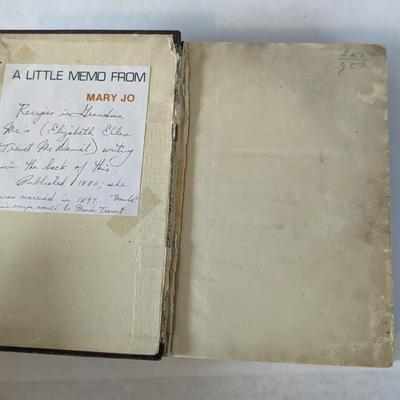 A LITTLE MEMO FROM
MARY JO
Recipes in Grandma
Mc's (Elizabeth Ellen
Trout McDaniel) writing
in the back of this
Published 1880; she
was married in 1897. "Maude"
in recipe would be Maude Trout